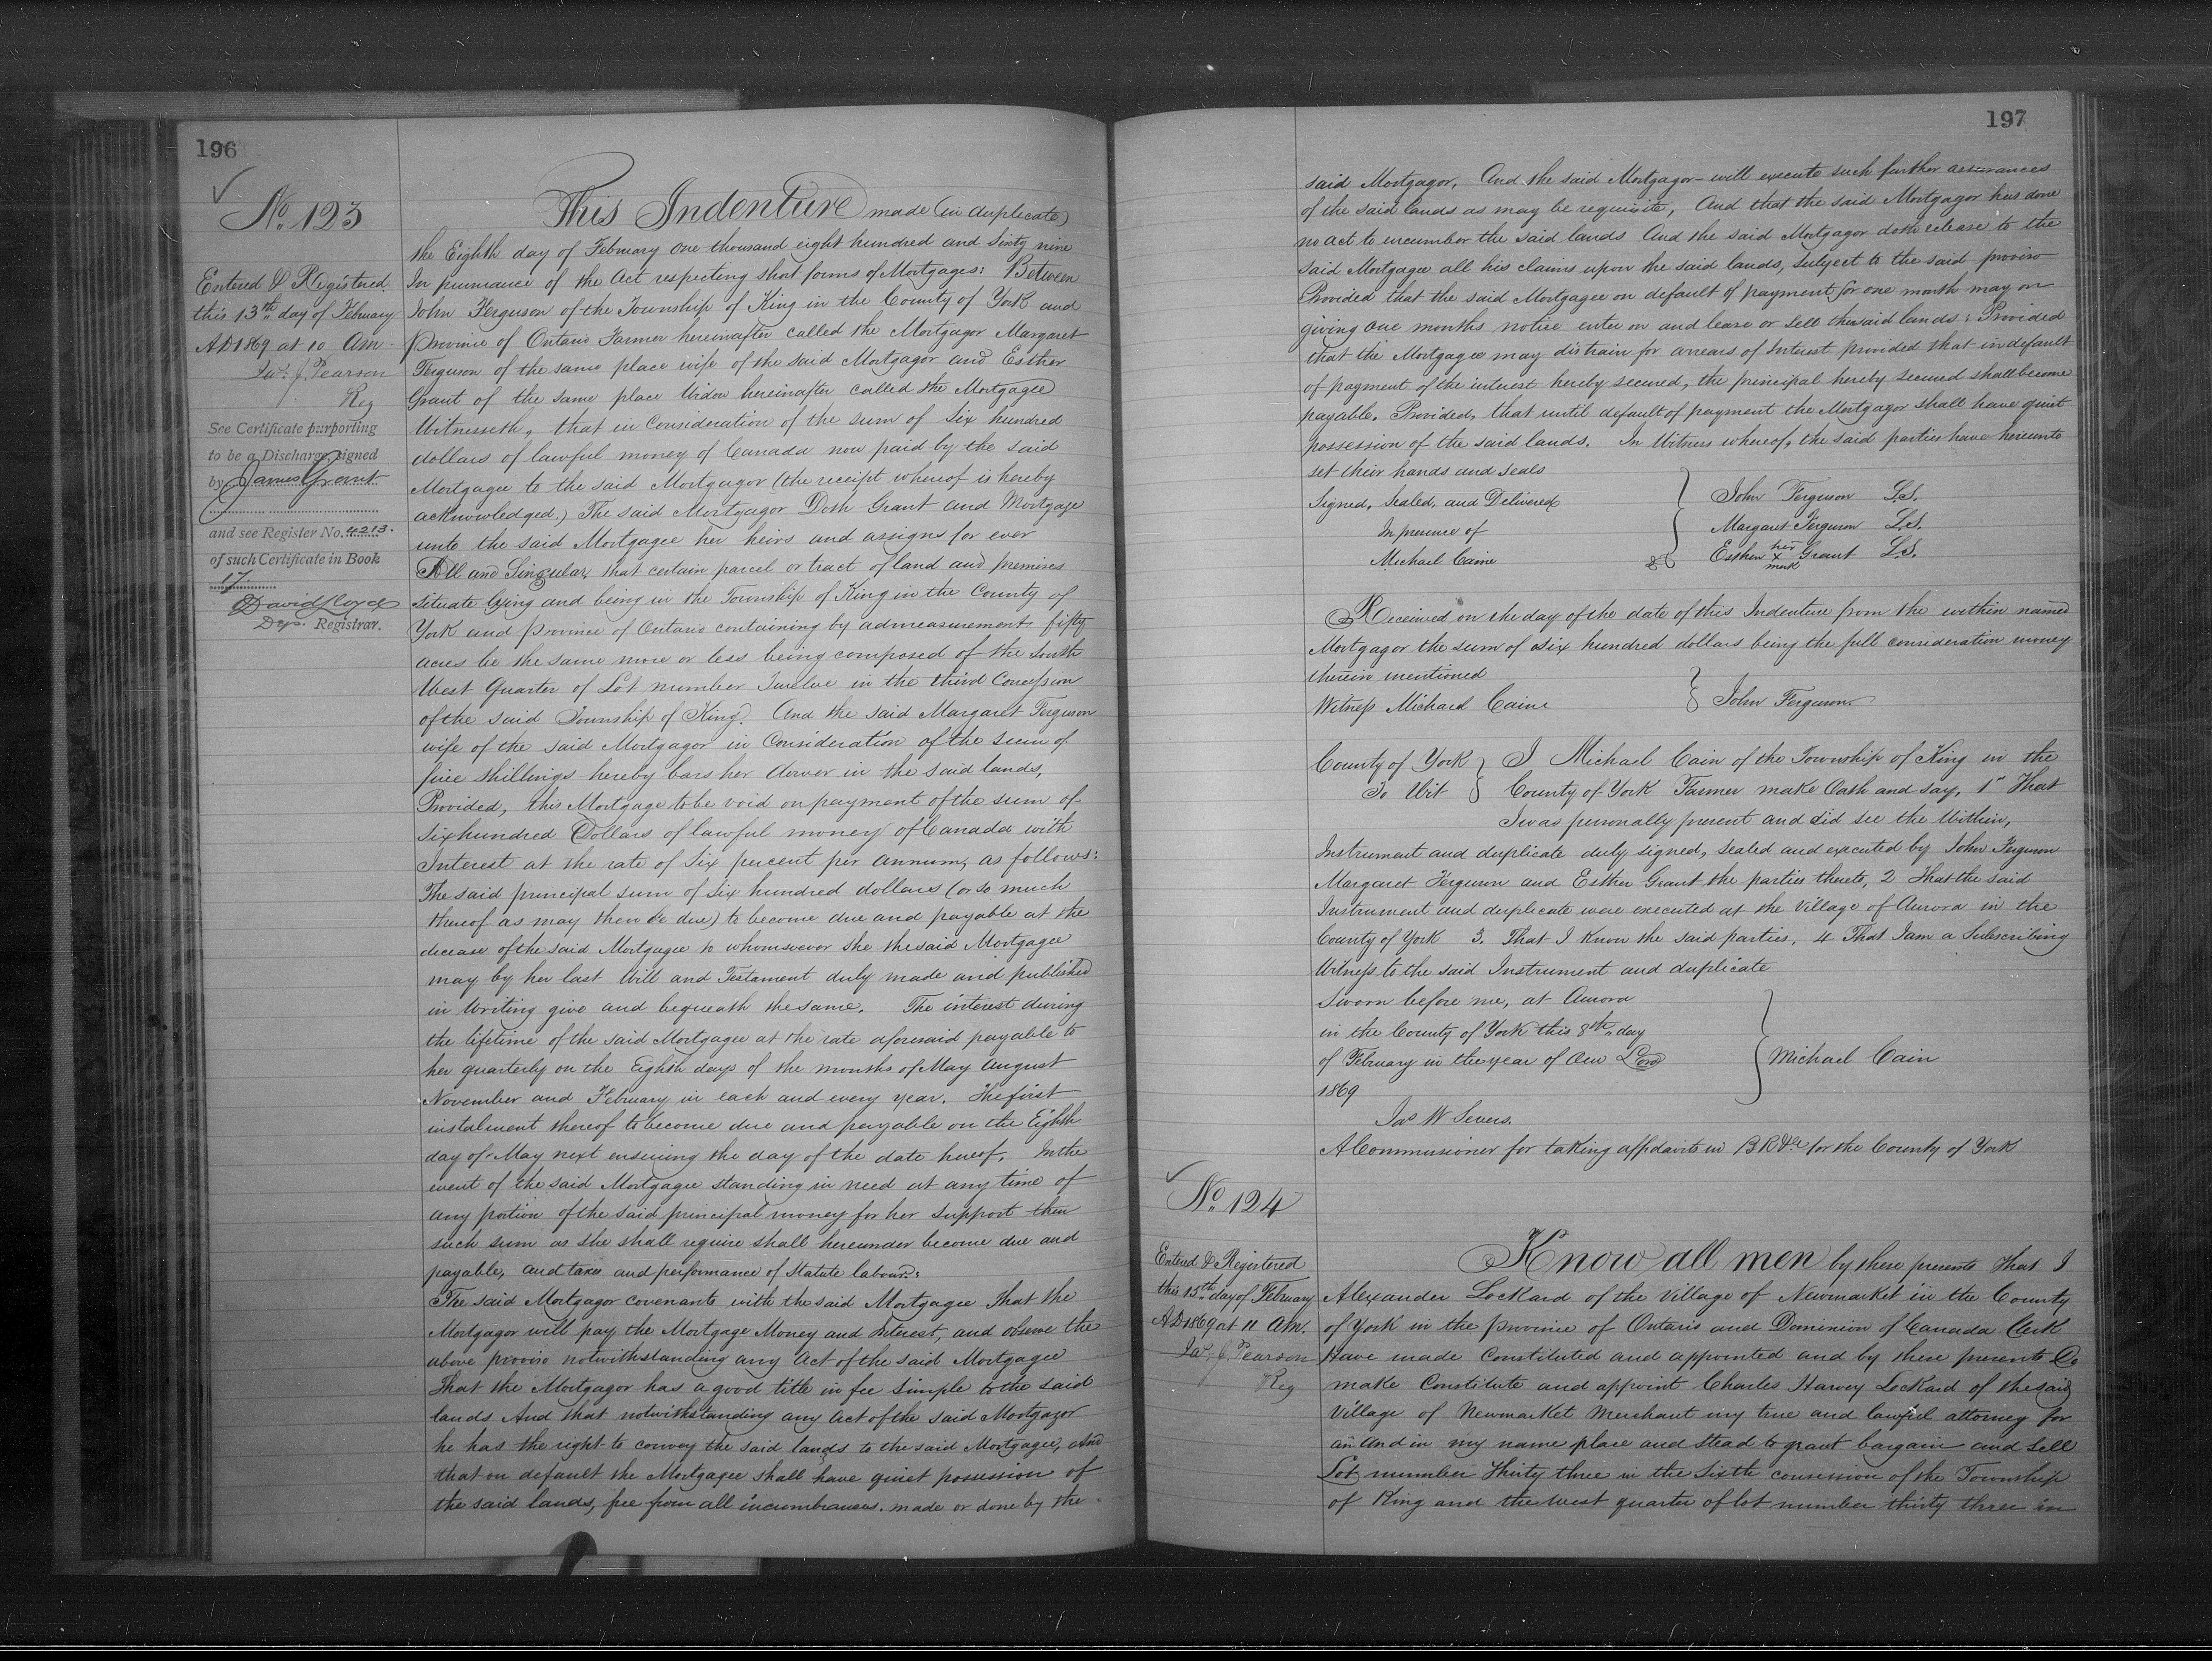 196
No. 123
Entered & Registered
this 13th day of February
AD 1869 at 10 Am
Jas. J. Pearson
Reg
See Certificate purporting
to be a Discharge signed
by James Grant
and see Register No. 4213.
of such Certificate in Book
17
David Lloyd
Dep. Registrar.
This Indenture made (in duplicate)
the Eighth day of February one thousand eight hundred and Sixty nine
In pursuance of the Act respecting short forms of Mortgages: Between
John Ferguson of the Township of King in the County of York and
Province of Ontario Farmer hereinafter called the Mortgagor Margaret
Ferguson of the same place wife of the said Mortgagor and Esther
Grant of the same place Widow hereinafter called the Mortgagee
Witnesseth, that in Consideration of the sum of Six hundred
dollars of lawful money of Canada now paid by the said
Mortgagee to the said Mortgagor (the receipt whereof is hereby
acknowledged.) The said Mortgagor Doth Grant and Mortgage
unto the said Mortgagee her heirs and assigns for ever
All and Singular, that certain parcel or tract of land and premises
situate lying and being in the Township of King in the County of
York and Province of Ontario containing by admeasurement fifty
acres be the same more or less being composed of the South
West Quarter of Lot number Twelve in the third Concession
of the said Township of King. And the said Margaret Ferguson
wife of the said Mortgagor in Consideration of the sum of
five shillings hereby bars her dower in the said lands,
Provided, this Mortgage to be void on payment of the sum of
Six hundred Dollars of lawful money of Canada with
Interest at the rate of Six per cent per annum, as follows:
The said principal sum of Six hundred dollars (or so much
thereof as may then be due) to become due and payable at the
decease of the said Mortgagee to whomsoever she the said Mortgagee
may by her last Will and Testament duly made and published
in Writing give and bequeath the same. The interest during
the lifetime of the said Mortgagee at the rate aforesaid payable to
her quarterly on the Eighth days of the months of May August
November and February in each and every year. The first
instalment thereof to become due and payable on the Eighth
day of May next ensuing the day of the date hereof. In the
event of the said Mortgagee standing in need at any time of
any portion of the said principal money for her support then
such sum as she shall require shall hereunder become due and
payable, and taxes and performance of Statute labour:
The said Mortgagor covenants with the said Mortgagee That the
Mortgagor will pay the Mortgage Money and Interest, and observe the
above proviso notwithstanding any Act of the said Mortgagee
That the Mortgagor has a good title in fee Simple to the said
lands And that notwithstanding any Act of the said Mortgagor
he has the right to convey the said lands to the said Mortgagee, And
that on default the Mortgagee shall have quiet possession of
the said lands, free from all incumbrances. made or done by the
197
said Mortgagor, And the said Mortgagor will execute such further assurances
of the said lands as may be requisite, And that the said Mortgagor has done
no act to encumber the said lands And the said Mortgagor doth release to the
said Mortgagee all his claims upon the said lands, subject to the said proviso
Provided that the said Mortgagee on default of payment for one month may on
giving one months notice enter on and lease or sell the said lands: Provided
that the Mortgagee may distrain for arrears of Interest provided that in default
of payment of the interest hereby secured, the principal hereby secured shall become
payable. Provided, that until default of payment the Mortgagor shall have quiet
possession of the said lands. In Witness whereof, the said parties have hereunto
set their hands and seals
Signed, Sealed, and Delivered
In presence of
Michael Caine
John Ferguson L.S.
Margaret Ferguson L.S.
Esther her x mark Grant L.S.
Received on the day of the date of this Indenture from the within named
Mortgagor the sum of six hundred dollars being the full consideration money
therein mentioned
Witness Michael Caine John Ferguson
County of York I Michael Cain of the Township of King in the
To Wit County of York Farmer make Oath and say, 1st That
I was personally present and did see the Within,
Instrument and duplicate duly signed, sealed and executed by John Ferguson
Margaret Ferguson and Esther Grant the parties thereto, 2 That the said
Instrument and duplicate were executed at the Village of Aurora in the
County of York 3. That I know the said parties, 4 That I am a Subscribing
Witness to the said Instrument and duplicate
Sworn before me, at Aurora
in the County of York this 8th day
of February in the year of Our Lord Michael Cain
1869
Jas W
A Commissioner for taking affidavits in B R &c for the County of York
No. 124
Entered & Registered
this 15th day of February
AD 1869 at 11 AM.
Jas. J. Pearson
Reg
Know all men by these presents That I
Alexander Lockard of the Village of Newmarket in the County
of York in the Province of Ontario and Dominion of Canada Clerk
Have made Constituted and appointed and by these presents Do
make Constitute and appoint Charles Harvey Lockard of the said
Village of Newmarket Merchant my true and lawful attorney for
an and in my name place and stead to grant bargain and sell
Lot number thirty three in the Sixth concession of the Township
of King and the West quarter of lot number thirty three in